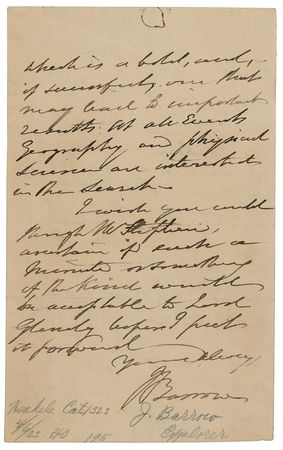 which is a bold, and,
if successful, one that
may lead to important
results. At all Events
Geography and physical
Science are interested
in the Search.
I wish you could
through Mr
ascertain if such a
Minute or something
of the kind would
be acceptable to Lord
Glenelg before I put
it forward
Yours always,
J Barrow
J. Barrow
Explorer